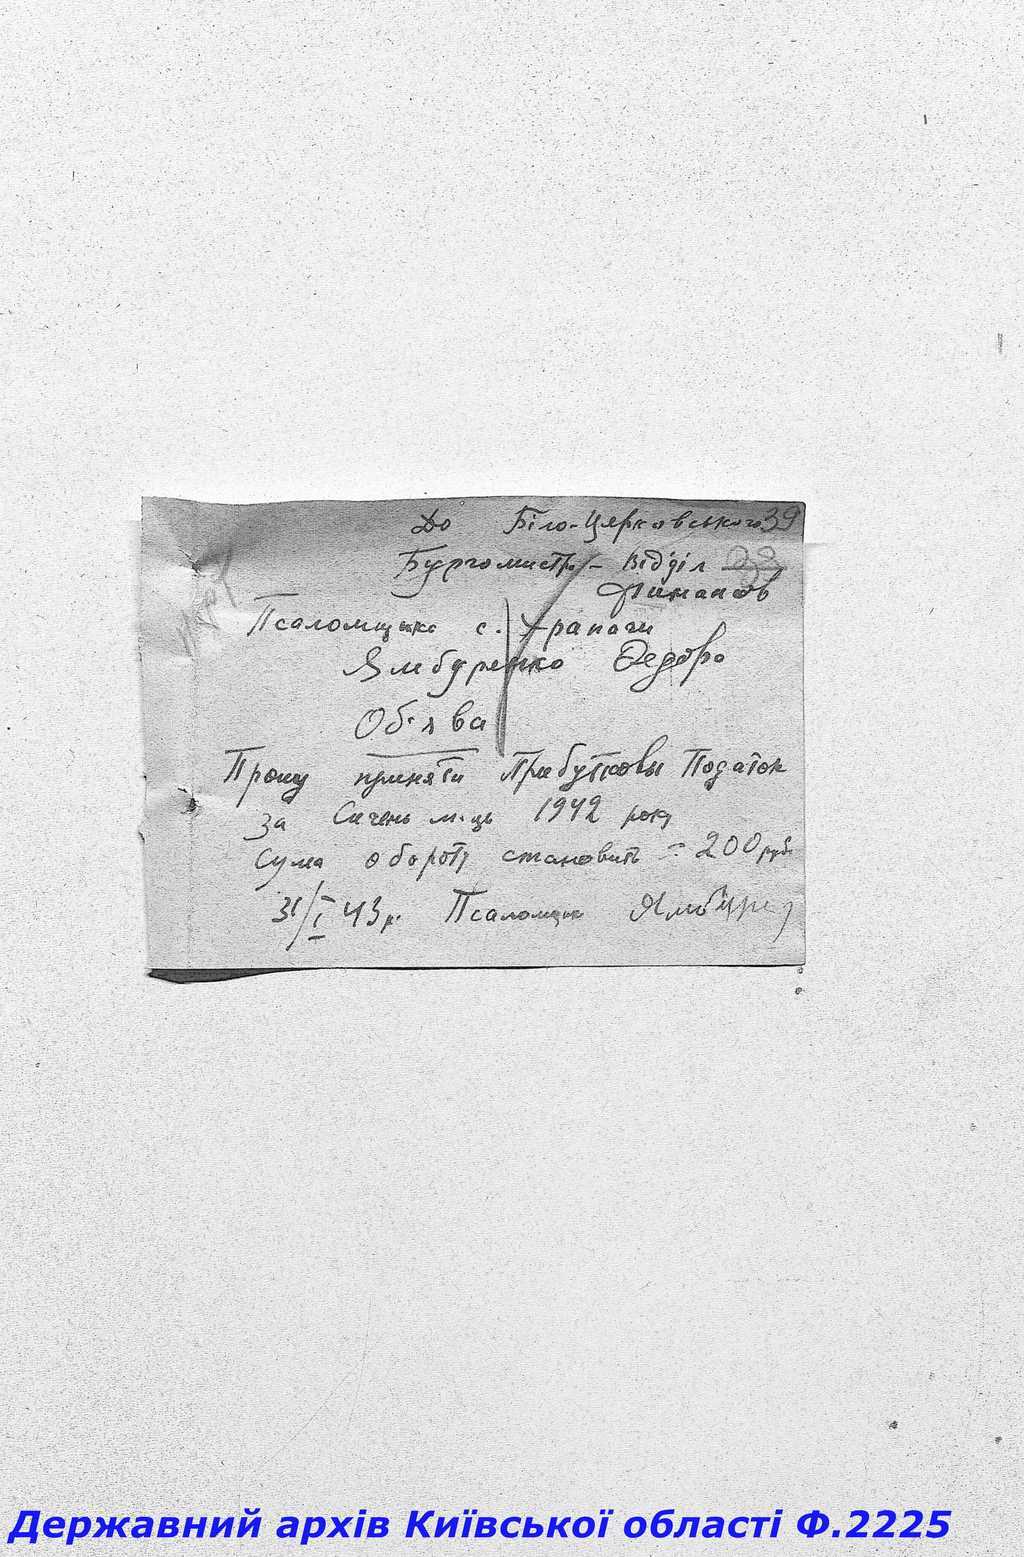 До Біло-Церковського 39
Бургомистр. - Відділ
Финансов
Псаломщика с. Храпачи
Ямбуренко Федора
Об'ява
Прошу приняти Прибутковы Податок
За Сичень м-ць 1942 року
Сума обороту становить = 200 руб.
31/I 43 р. Псаломщик
Державний архів Київської області Ф.2225